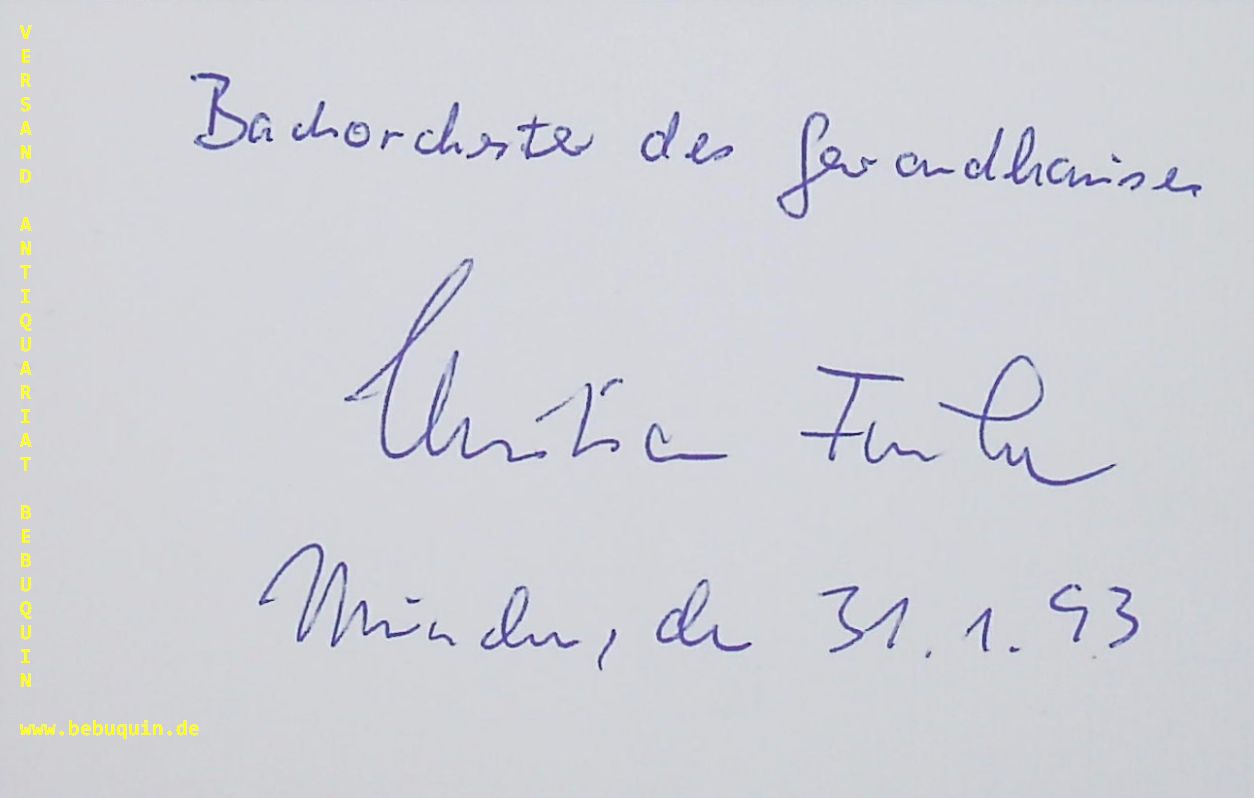 VERSAND ANTIQUARIAT BEBUQUIN
Bachorchester des Gewandhauses
Christian Funke
München, den 31.1.93
www.bebuquin.de